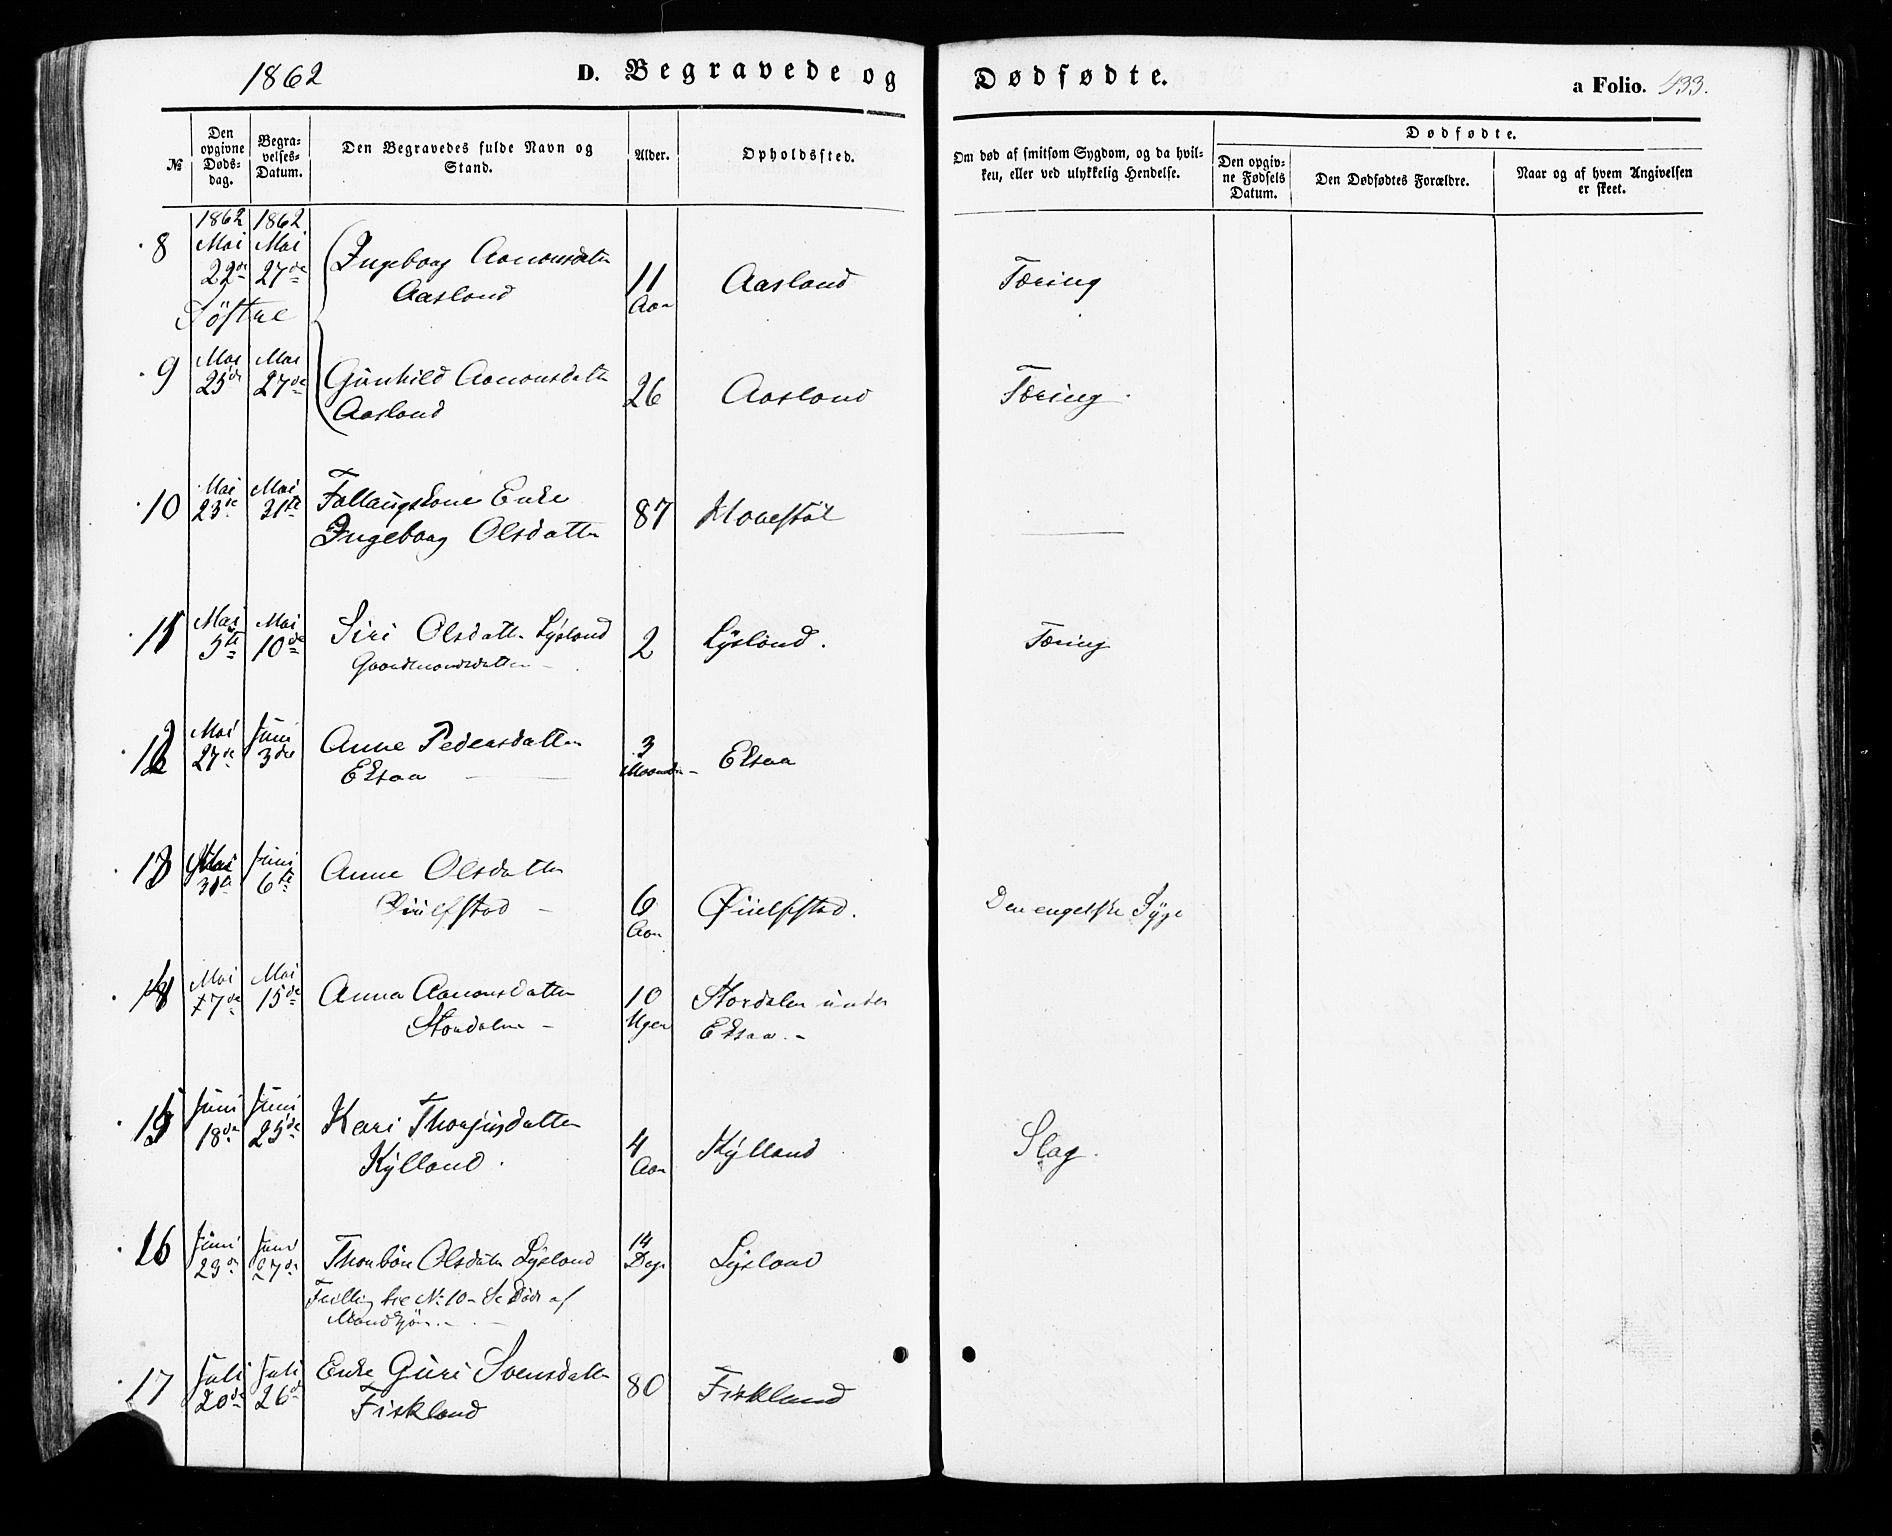 1862 D. Begravede og Dødfødte. a Folio. 433.
№
Den opgivne Døds-dag.
Begra-velses-Datum.
Den Begravedes fulde Navn og Stand.
Alder.
Opholdssted.
Om død af smitsom Sygdom, og da hvil-ken, eller ved ulykkelig Hendelse.
Dødfødte.
Den opgiv-ne Fødsels Datum.
Den Dødfødtes Forældre.
Naar og af hvem Angivelsen er skeet.
1862 1862
8 Mai 22de Mai 27de Ingeborg Aanonsdatter Aasland 11 Aar Aasland Tæring
Søstre
9 Mai 25de Mai 27de Gunhild Aanonsdatter Aasland 26 Aasland Tæring.
10 Mai 23de Mai 31te Fattiglem Enke
Ingeborg Olsdatter 87 —
11 Mai 5te Mai 10de Siri Olsdatter Lysland 2 Lysland. Tæring
Gaardmandsdatter —
12 Mai 27de Juni 3die Anne Pedersdatter
Eksaa — 3 Maaneder Eksaa
13 Mai 31te Juni 6te Anne Olsdatter
Øiulfstad — 6 Aar Øiulfstad. Den engelske Syge
14 Mai 7de Mai 15de Anna Aanonsdatter 10 Uger Stordalen under
Stordalen — Eksaa. —
15 Juni 18de Juni 25de Kari Thorjusdatter
Kylland. 4 Aar Kylland Slag.
16 Juni 23de Juni 27de Thorbør Olsdatter Lysland 14 Dage Lysland
Tvilling No 10 af
Mandkjøn. —
17 Juli 20de Juli 26de Enke Guri Svensdatter
Fiskland 80 Fiskland